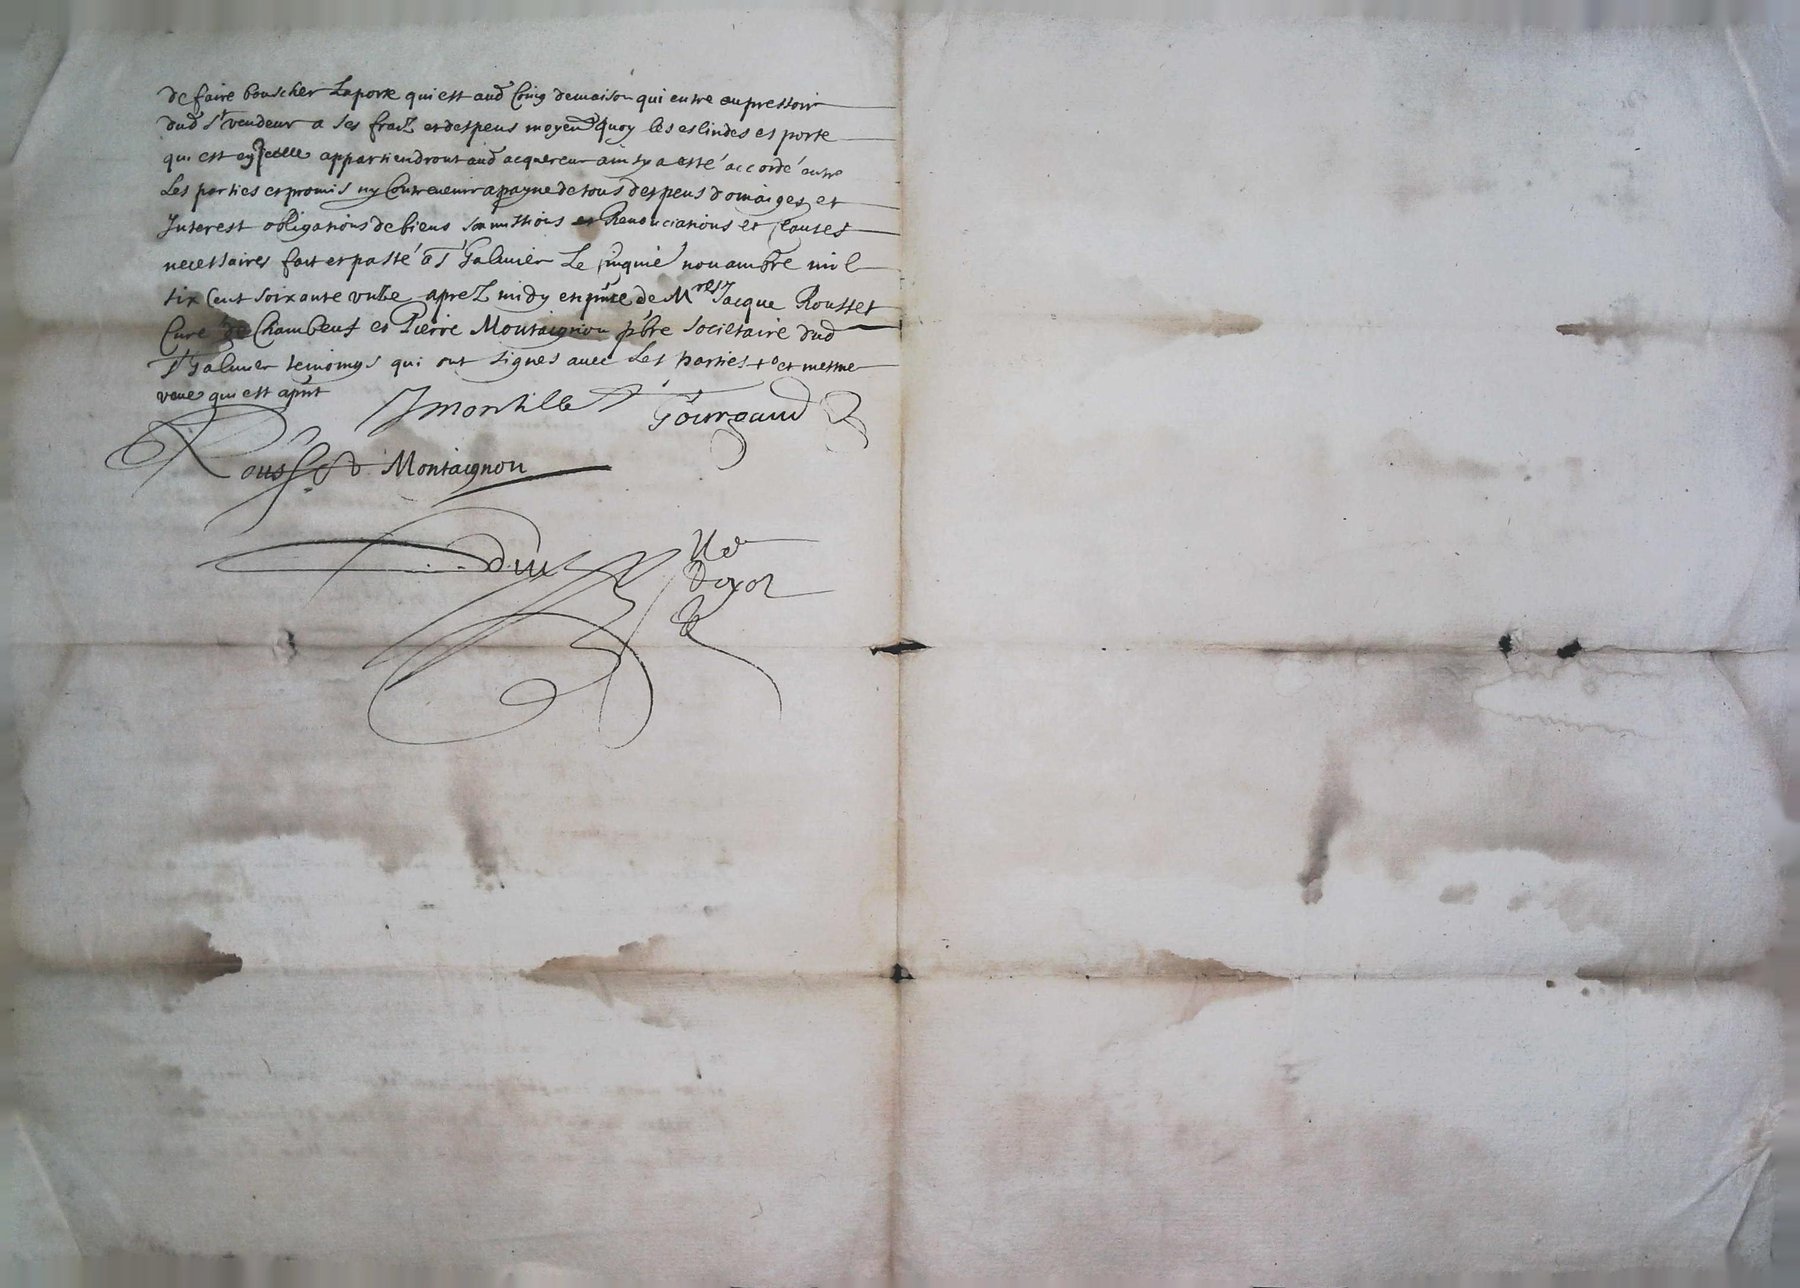 de faire bouscher Laporte qui est aud Coing demaison qui entre aupressoir
dud Sr vendeur a ses fraiz et despens moyend quoy les eslindes et porte
qui est en Icelle appartiendront aud acquereur ainsy a esté accordé entre
Les parties et promis ny Contrevenir apayne de tous despens domaiges et
Interest obligations de biens soumissions et Renonciations et clauses
necessaires fait et passé a St Galmier Le cinquie novambre mil
six Cent soixante unze aprez midy en pnce de Mres Jacque Rousset
Curé de Chambeuf et Pierre Montaignon pbre societaire dud
St Galmier temoings qui ont signes avec Les parties + et mesme
qui est apnt
Gourgaud
Rousset Montaignon